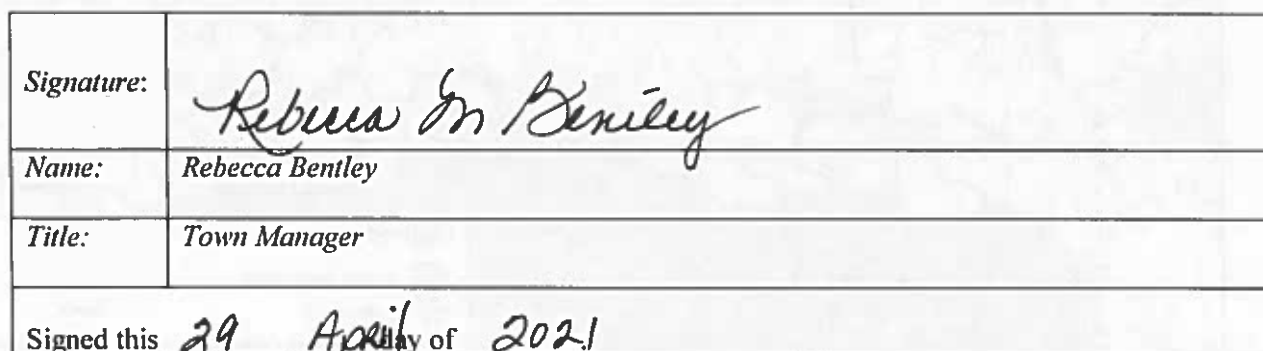 Signature: Rebecca M Bentley
Name: Rebecca Bentley
Title: Town Manager
Signed this 29 April day of 2021